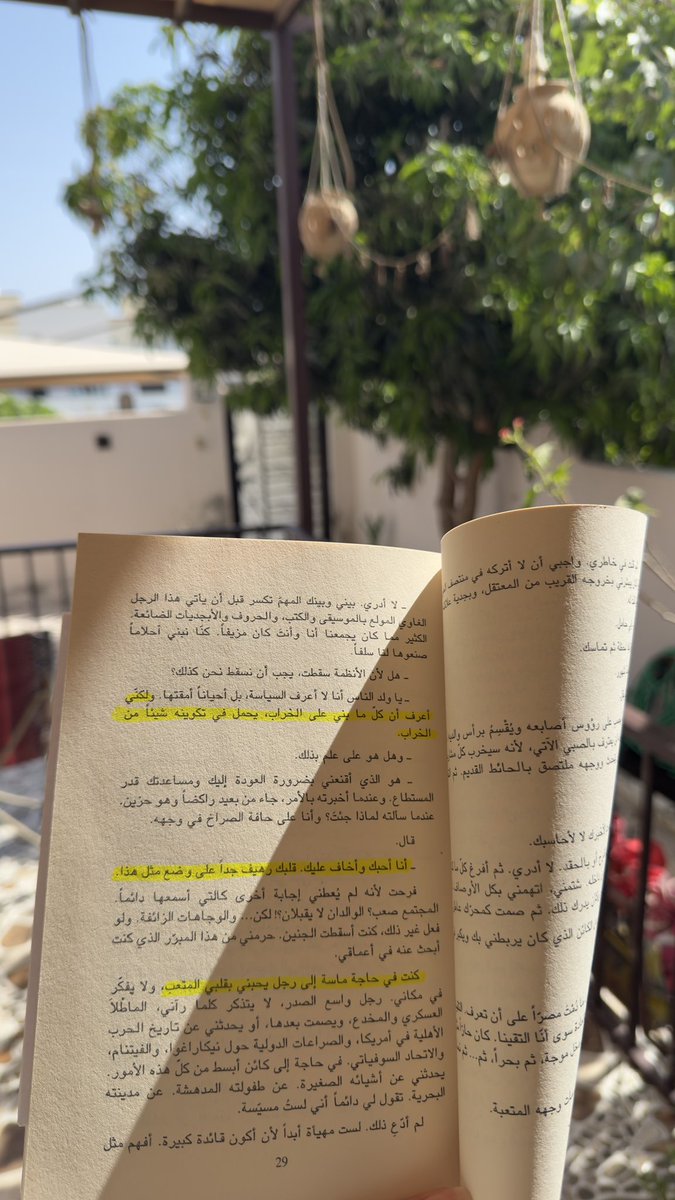 ـ لا أدري. بيني وبينك المهمّ تكسر قبل أن يأتي هذا الرجل
الغاوي المولع بالموسيقى والكتب، والحروف والأبجديات الضائعة.
الكثير مما كان يجمعنا أنا وأنتَ كان مزيفاً. كنّا نبني أحلاماً
صنعوها لنا سلفاً.
ـ هل لأن الأنظمة سقطت، يجب أن نسقط نحن كذلك؟
ـ يا ولد الناس أنا لا أعرف السياسة، بل أحياناً أمقتها. ولكنّي
أعرف أن كلّ ما بني على الخراب، يحمل في تكوينه شيئاً من
الخراب.
ـ وهل هو على علم بذلك.
ـ هو الذي أقنعني بضرورة العودة إليك ومساعدتك قدر
المستطاع. وعندما أخبرته بالأمر، جاء من بعيد راكضاً وهو حزين.
عندما سألته لماذا جئتَ؟ وأنا على حافة الصراخ في وجهه.
قال.
ـ أنا أحبك وأخاف عليك. قلبك رهيف جداً على وضع مثل هذا.
فرحت لأنه لم يُعطني إجابة أخرى كالتي أسمعها دائماً.
المجتمع صعب؟ الوالدان لا يقبلان؟! لكن... والوجاهات الزائفة. ولو
فعل غير ذلك، كنت أسقطت الجنين. حرمني من هذا المبرّر الذي كنت
أبحث عنه في أعماقي.
كنت في حاجة ماسة إلى رجل يحبني بقلبي المتعب، ولا يفكّر
في مكاني. رجل واسع الصدر، لا يتذكر كلما رآني، الماطْلاَ
العسكري والمخدع، ويصمت بعدها، أو يحدثني عن تاريخ الحرب
الأهلية في أمريكا، والصراعات الدولية حول نيكاراغوا، والفيتنام،
والاتحاد السوفياتي. في حاجة إلى كائن أبسط من كلّ هذه الأمور.
يحدثني عن أشيائه الصغيرة. عن طفولته المدهشة. عن مدينته
البحرية. تقول لي دائماً أني لستُ مسيّسة.
لم أدّعِ ذلك. لست مهيأة أبداً لأن أكون قائدة كبيرة. أفهم مثل
29
في خاطري. واجبي أن لا أتركه في منتصف
بخروجه القريب من المعتقل، وبجدية
ثم تماسك.
على رؤوس أصابعه ويُقْسِمُ برأس
بالصبي الآتي، لأنه سيخرب كلّ
ووجهه ملتصق بالحائط القديم. ثم
لا لأحاسبك.
أو بالحقد. لا أدري. ثم أفرغ كلّ
شتمني. اتهمني بكل
يدرك ذلك. ثم صمت
الكائن الذي كان يربطني بك
مصرّاً على أن تعرف.
سوى أنّنا التقينا. كان
موجة، ثم بحراً، ثم...
وجهه المتعبة.